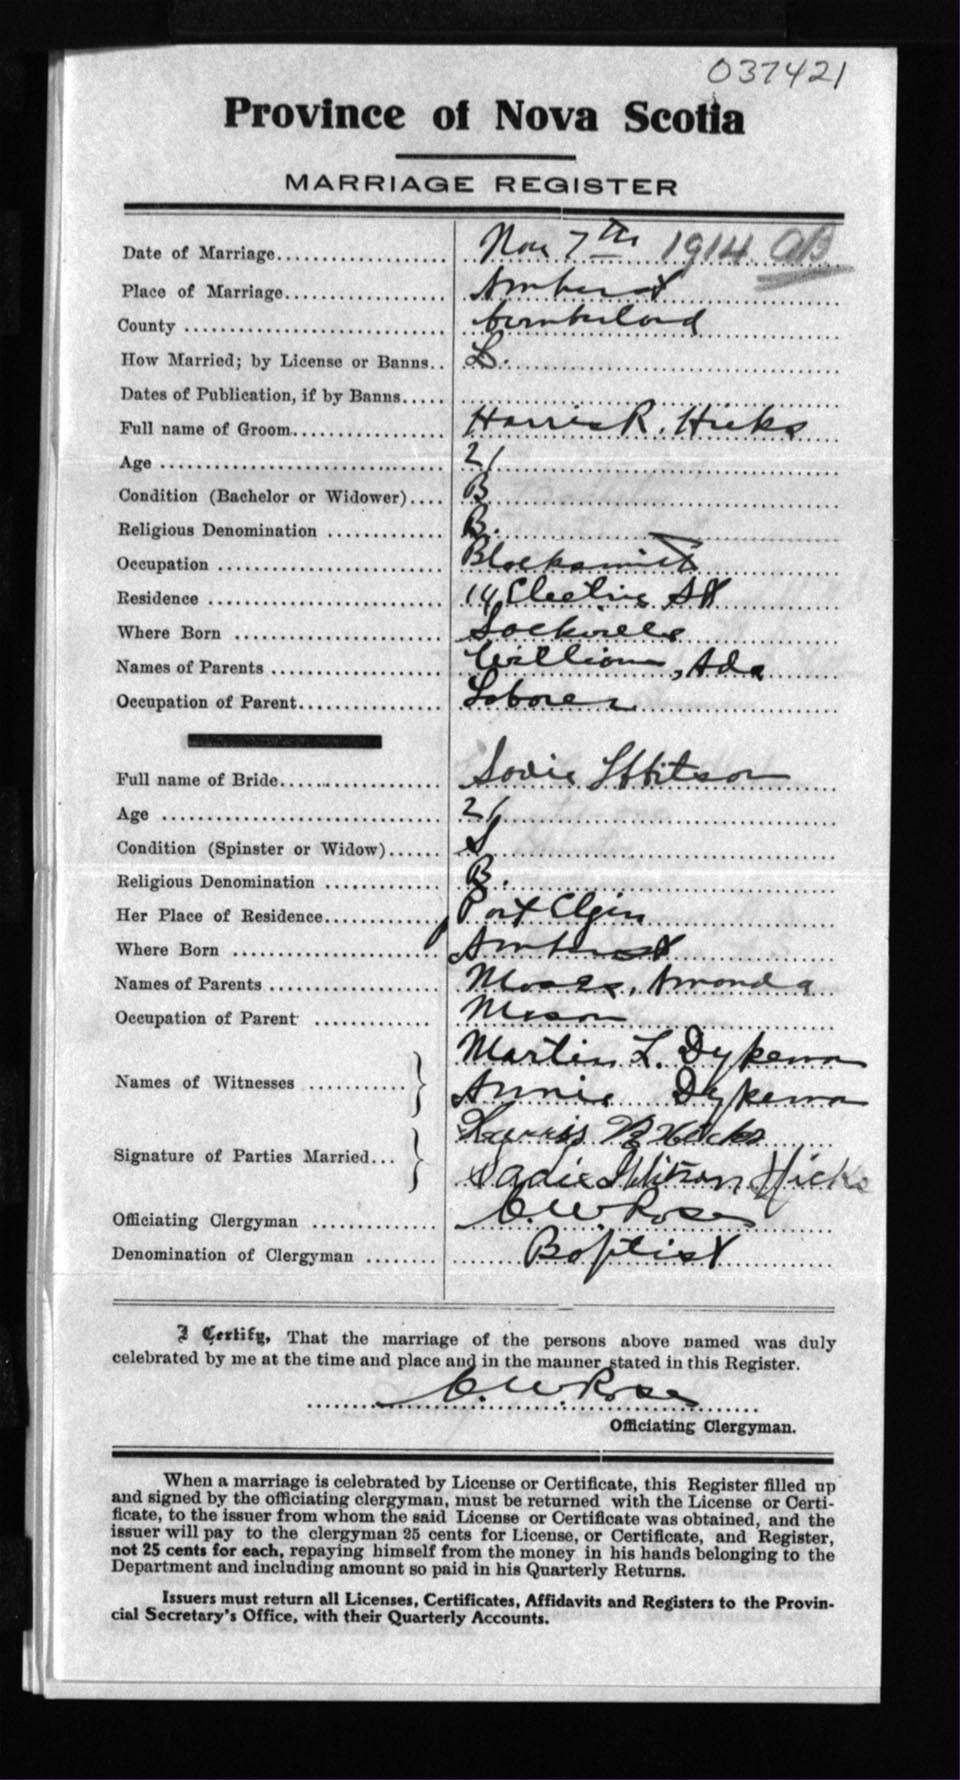 037421
Province of Nova Scotia
MARRIAGE REGISTER
Date of Marriage Nov 7th 1914
Place of Marriage Amherst
County Cumberland
How Married; by License or Banns L.
Dates of Publication, if by Banns
Full name of Groom Harris R. Hicks
Age 21
Condition (Bachelor or Widower) B
Religious Denomination B.
Occupation Blacksmith
Residence 14 Electric St
Where Born Sackville
Names of Parents William, Ada
Occupation of Parent Laborer
Full name of Bride Sadie
Age 21
Condition (Spinster or Widow) S
Religious Denomination B.
Her Place of Residence Port Elgin
Where Born Amherst
Names of Parents Moses, Amanda
Occupation of Parent Mason
Martin L. Dykeman
Names of Witnesses
Annie Dykeman
Harris R Hicks
Signature of Parties Married
Sadie Hicks
Officiating Clergyman C. W. Rose
Denomination of Clergyman Baptist
I Certify, That the marriage of the persons above named was duly
celebrated by me at the time and place and in the manner stated in this Register.
C. W. Rose
Officiating Clergyman.
When a marriage is celebrated by License or Certificate, this Register filled up
and signed by the officiating clergyman, must be returned with the License or Certi-
ficate, to the issuer from whom the said License or Certificate was obtained, and the
issuer will pay to the clergyman 25 cents for License, or Certificate, and Register,
not 25 cents for each, repaying himself from the money in his hands belonging to the
Department and including amount so paid in his Quarterly Returns.
Issuers must return all Licenses, Certificates, Affidavits and Registers to the Provin-
cial Secretary's Office, with their Quarterly Accounts.